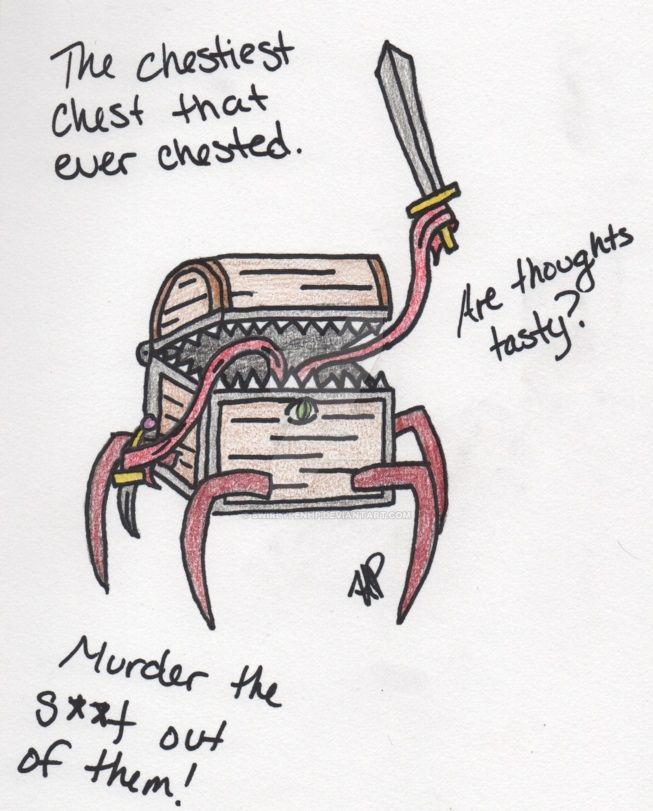 The chestiest
chest that
ever chested.
Are thoughts
tasty?
Murder the
s**t out
of them!